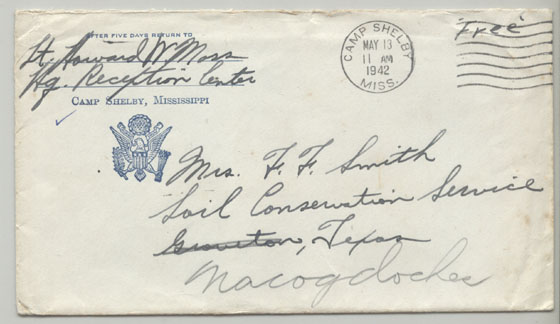 AFTER FIVE DAYS RETURN TO
Lt. Howard W. Moss
Hq. Reception Center
CAMP SHELBY, MISSISSIPPI
CAMP SHELBY
MAY 13
11 AM
1942
MISS.
Free
Mrs. F. F. Smith
Soil Conservation Service
Groveton, Texas
Nacogdoches